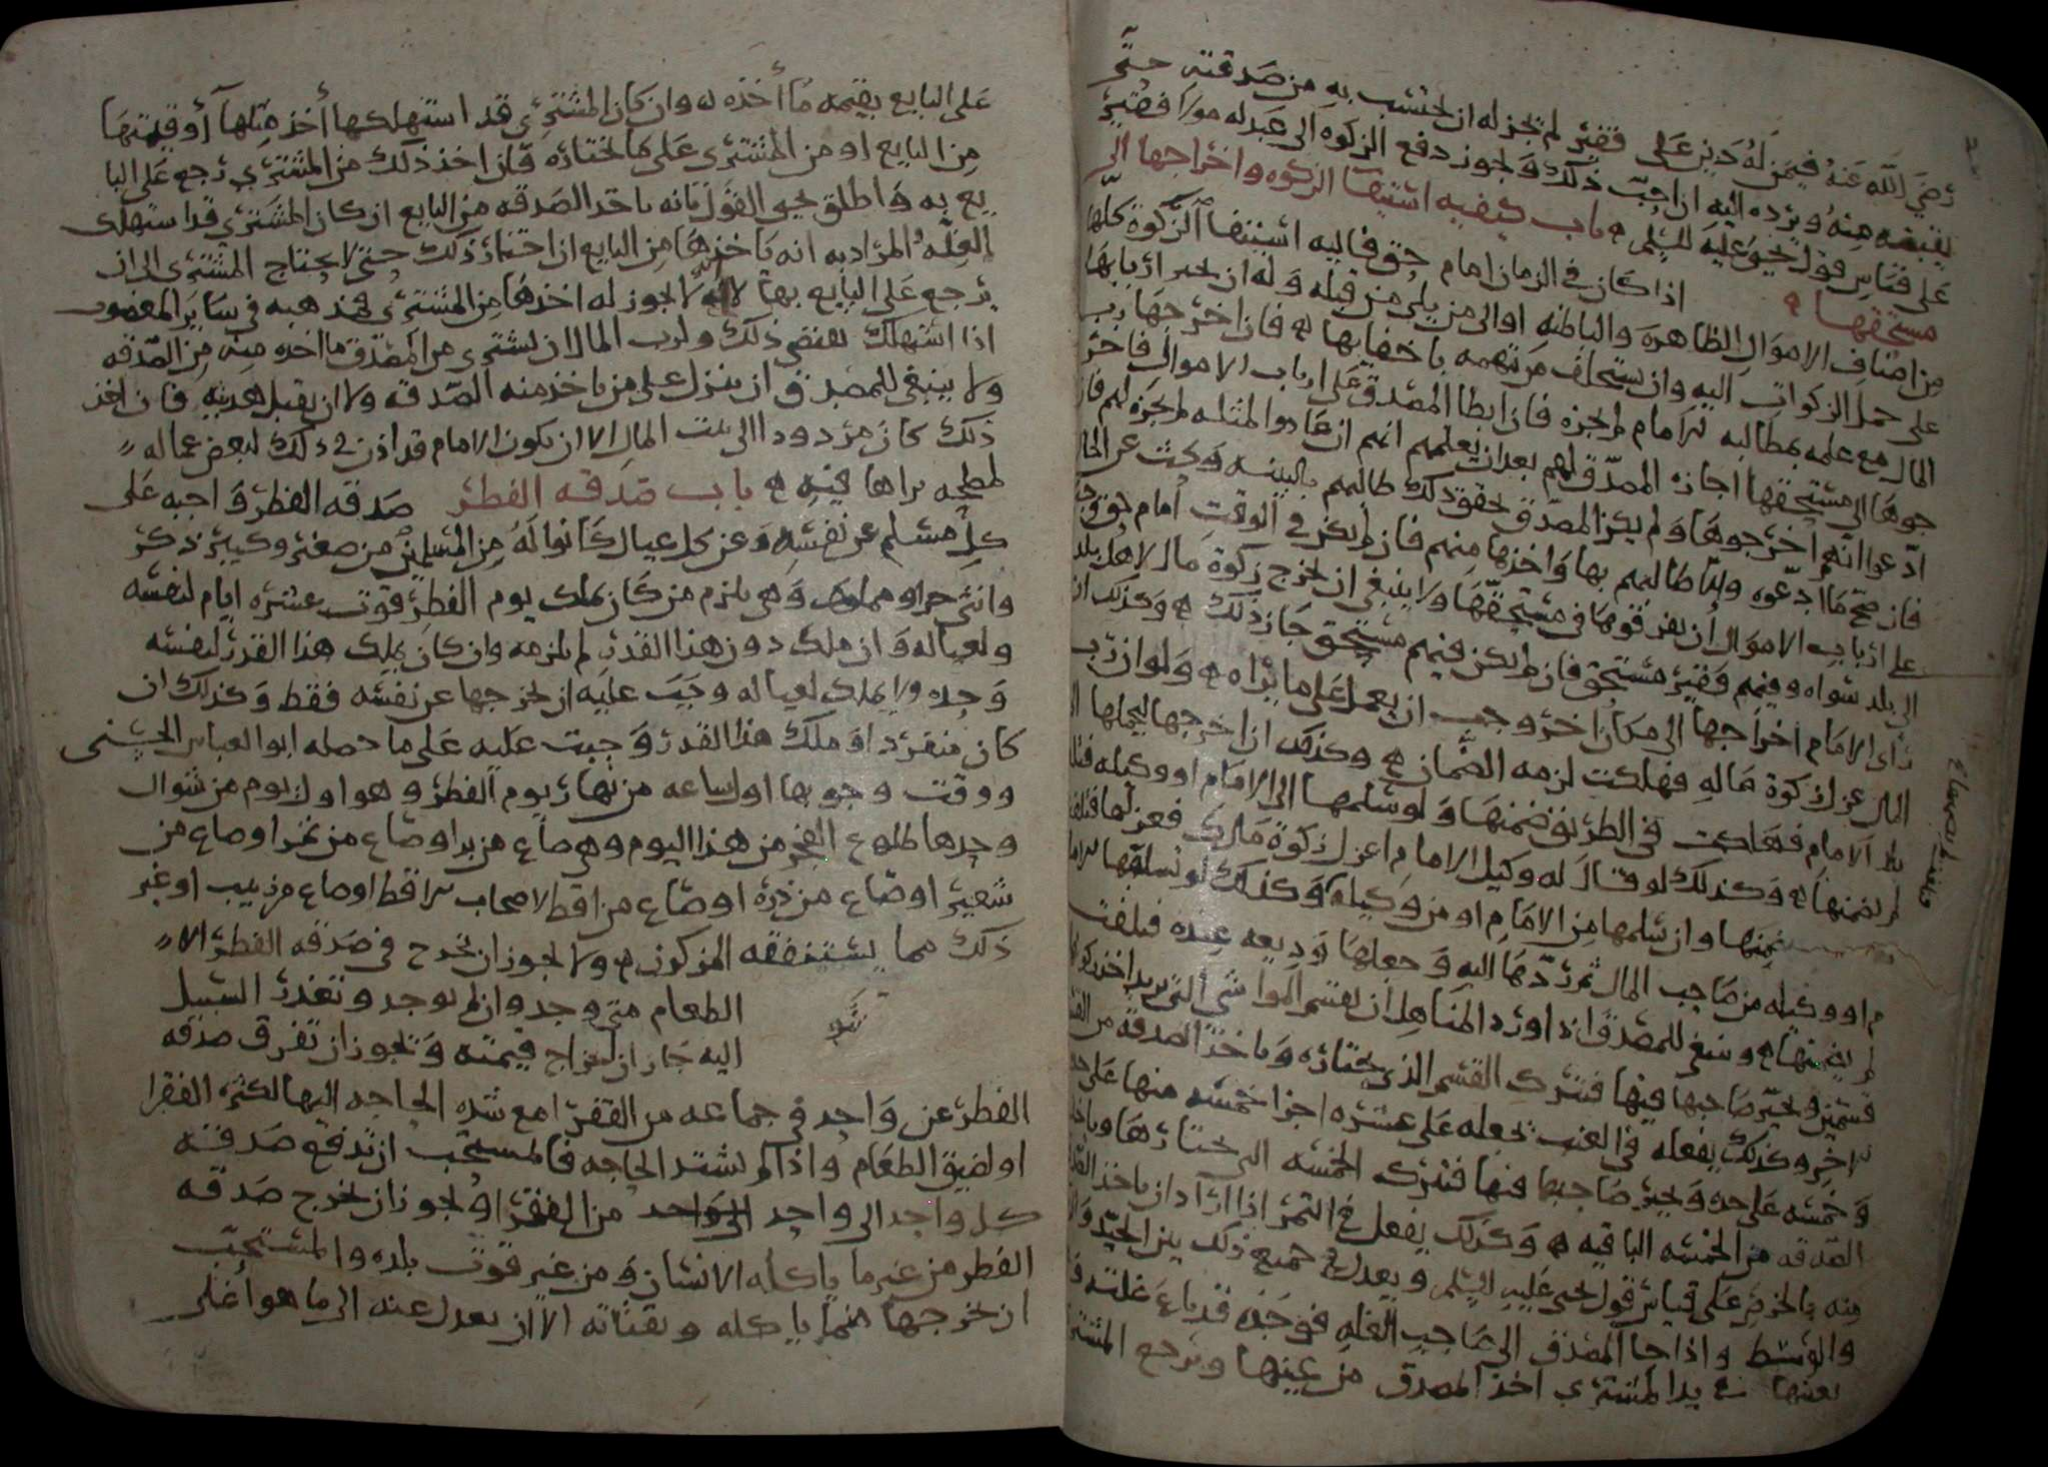 رضي الله عنه فيمن له دين على فقير لم يجز له ان يحتسب به من صدقته حتى
يقبضه منه ويرده اليه ان احب ذلك ولا يجوز دفع الزكوه الى عبد له مولا فقير
على قياس قول يحيى عليه السلم ه باب كيفيه استيفا الزكوه واخراجها الى
مستحقها ه اذا كان في الزمان امام حق فاليه استيفا الزكوة كلها
من اصناف الاموال الظاهره والباطنه او الى من يلي من قبله وله ان يجبر اربابها
على حمل الزكوات اليه وان يستحلف من يتهمه باخفايها ه فان اخرجها رب
المال مع علمه بمطالبه الامام لم يجزه فان ابطا المصدق على ارباب الاموال فاخر
جوها الى مستحقها اجازه المصدق لهم بعد ان يعلمهم انهم ان عادوا لمثله لم يجزه لهم فان
ادعوا انهم اخرجوها ولم يكن المصدق تحقق ذلك طالبهم بالبينه وبحث عن الحال
فان صح ما ادعوه والا طالبهم بها واخذها منهم فان لم يكن في الوقت امام حق وجب
على ارباب الاموال ان يفرقوها في مستحقها ولا ينبغي ان يخرج زكوة مال لاهل بلد
الى بلد سواه وفيهم فقير مستحق فان لم يكن فيهم مستحق جاز ذلك ه وكذلك ان
راى الامام اخراجها الى مكان اخر وجب ان يعمل على ما يراه ه ولو ان رب
المال عزل زكوة ماله فهلكت لزمه الضمان ه وكذلك ان اخرجها ليحملها الى
الامام فهلكت في الطريق ضمنها ولو سلمها الى الامام او وكيله فتلفت
لم يضمنها ه وكذلك لو قال له وكيل الامام اعزل زكوة مالك فعزلها فتلفت
يضمنها وان سلمها من الامام او من وكيله وكذلك لو تسلمها الاما
م او وكيله من صاحب المال ثم ردها اليه وجعلها وديعه عنده فتلفت
لم يضمنها ه وينبغي للمصدق اذا ورد المناهل ان يقسم المواشي التي يريد اخذ زكوتها
قسمين ويخير صاحبها فيها فيترك القسم الذي يختاره وياخذ الصدقة من القسم
الاخر وكذلك يفعله في العنب يجعله على عشره اجزا خمسه منها على حده
وخمسه على حده ويخير صاحبها فيها فيترك الخمسه التي يختارها وياخذ
الصدقه من الخمسه الباقيه ه وكذلك يفعل في التمر اذا اراد ان ياخذ الصدقه
منه بالخرص على قياس قول يحيى عليه السلم ويعدل في جميع ذلك بين الجيد والردي
والوسط واذا جا المصدق الى صاحب الغله فوجده قد باع غلته
بعينها في يد المشتري اخذ المصدق من عينها ويرجع المشتري
على البايع بقيمه ما أخذه له وان كان المشتري قد استهلكها أخذ مثلها أو قيمتها
من البايع او من المشتري على ما يختاره فان اخذ ذلك من المشتري رجع على البا
يع به واطلق يحيى القول بانه ياخذ الصدقه من البايع ان كان المشتري قد استهلك
الغله المراد به انه ياخذها من البايع ان اختار ذلك حتى لا يحتاج المشتري الى ان
يرجع على البايع بها لا انه لا يجوز له اخذها من المشتري فمذهبه في ساير المغصوب
اذا استهلك يقتضي ذلك ولرب المال ان يشتري من المصدق ما اخذه منه من الصدقه
ولا ينبغي للمصدق ان ينزل على من ياخذ منه الصدقه ولا ان يقبل هديته فان اخذ
ذلك كان مردودا الى بيت المال الا ان يكون الامام قد اذن في ذلك لبعض عماله
لمصلحه يراها فيه ه باب صدقه الفطر صدقه الفطر واجبه على
كل مسلم عن نفسه وعن كل عيال كانوا له من المسلمين من صغير وكبير ذكر
وانثى حر او مملوك وهي تلزم من كان يملك يوم الفطر قوت عشره ايام لنفسه
ولعياله وان ملك دون هذا القدر لم تلزمه وان كان يملك هذا القدر لنفسه
وحده ولا يملك لعياله وجب عليه ان يخرجها عن نفسه فقط وكذلك ان
كان منفردا وملك هذا القدر وجبت عليه على ما حصله ابو العباس الحسني
ووقت وجوبها اول ساعه من نهار يوم الفطر وهو اول يوم من شوال
وحدها طلوع الفجر من هذا اليوم وهي صاع من بر او صاع من تمر او صاع من
شعير او صاع من ذره او صاع من اقط لاصحاب الاقط او صاع من زبيب او غير
ذلك مما يستنفقه المزكون ه ولا يجوز ان يخرج في صدقه الفطر الا
الطعام متى وجد وان لم يوجد وتعذر السبيل
اليه جاز اخراج قيمته ويجوز ان تفرق صدقه
الفطر عن واحد في جماعه من الفقرا مع شده الحاجه اليها لكثره الفقرا
او لضيق الطعام واذا لم تشتد الحاجه فالمستحب ان تدفع صدقه
كل واحد الى واحد من الفقرا ويجوز ان يخرج صدقه
الفطر من غير ما ياكله الانسان ومن غير قوت بلده والمستحب
ان يخرجها مما ياكله ويقتاته الا ان يعدل عنه الى ما هو أغلى